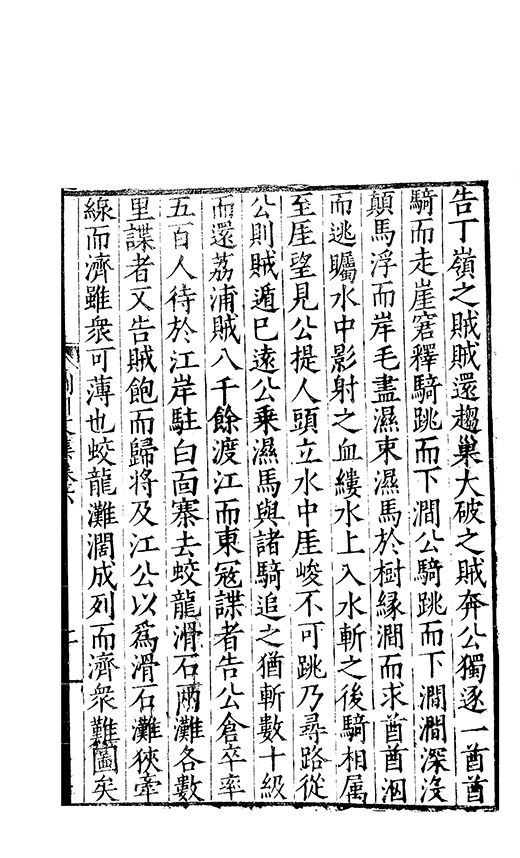 告丁嶺之賊賊還趨巢大破之賊奔公獨逐一酋酋
騎而走崖窘釋騎跳而下澗公騎跳而下澗澗深沒
顛馬浮而岸毛盡濕束濕馬於樹緣澗而求酋酋泅
而逃矚水中影射之血縷水上入水斬之後騎相属
至崖望見公提人頭立水中崖峻不可跳乃尋路從
公則賊遁已遠公乘濕馬與諸騎追之猶斬數十級
而還荔浦賊八千餘渡江而東寇諜者告公倉卒率
五百人待於江岸駐白面寨去蛟龍滑石兩灘各數
里諜者又告賊飽而歸將及江公以爲滑石灘狹牽
線而濟雖衆可薄也蛟龍灘濶成列而濟衆難圖矣